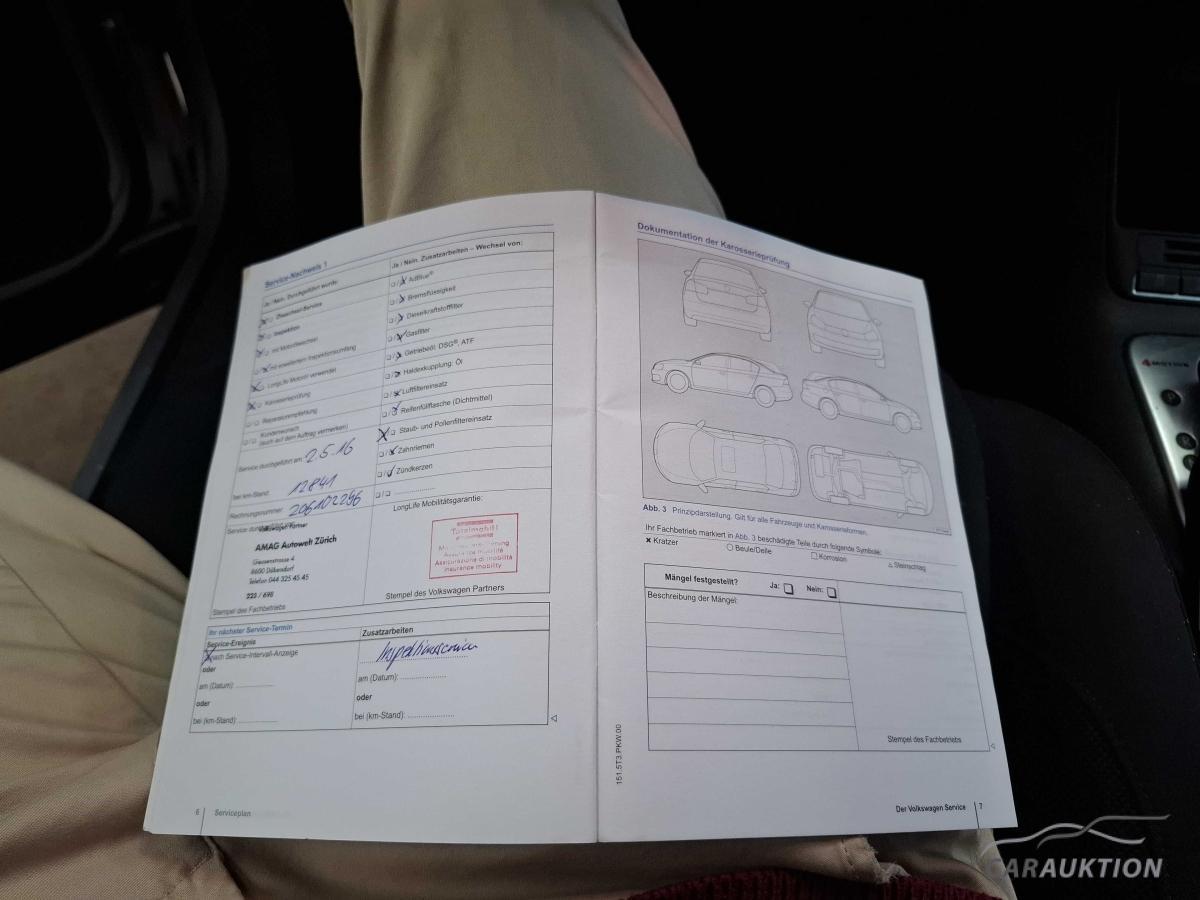 Service-Nachweis 1
Ja / Nein. Durchgeführt wurde:
Ölwechsel-Service
Inspektion
mit Motorölwechsel
mit erweitertem Inspektionsumfang
LongLife Motoröl verwendet
Karosserieprüfung
Reparaturempfehlung
Kundenwunsch
(auch auf dem Auftrag vermerken)
Service durchgeführt am: 2.5.16
bei km-Stand: 12841
Rechnungsnummer: 206102296
AMAG Autowelt Zürich
Giessenstrasse 4
8600 Dübendorf
Telefon 044 325 45 45
223 / 698
Stempel des Fachbetriebs
Ja / Nein. Zusatzarbeiten – Wechsel von:
AdBlue®
Bremsflüssigkeit
Dieselkraftstofffilter
Gasfilter
Getriebeöl: DSG®, ATF
Haldexkupplung: Öl
Luftfiltereinsatz
Reifenfüllflasche (Dichtmittel)
Staub- und Pollenfiltereinsatz
Zahnriemen
Zündkerzen
LongLife Mobilitätsgarantie:
Totalmobil!
Assurance mobilité
Assicurazione di mobilità
insurance mobility
Stempel des Volkswagen Partners
Ihr nächster Service-Termin
Service-Ereignis
nach Service-Intervall-Anzeige
oder
am (Datum):
oder
bei (km-Stand):
Zusatzarbeiten
Inspektionsservice
am (Datum):
oder
bei (km-Stand):
6 Serviceplan
Dokumentation der Karosserieprüfung
Abb. 3 Prinzipdarstellung. Gilt für alle Fahrzeuge und Karosserieformen.
Ihr Fachbetrieb markiert in Abb. 3 beschädigte Teile durch folgende Symbole:
Kratzer Beule/Delle Korrosion Steinschlag
Mängel festgestellt? Ja: Nein:
Beschreibung der Mängel:
Stempel des Fachbetriebs
151.5T3.PKW.00
Der Volkswagen Service 7
4MOTION
CARAUKTION